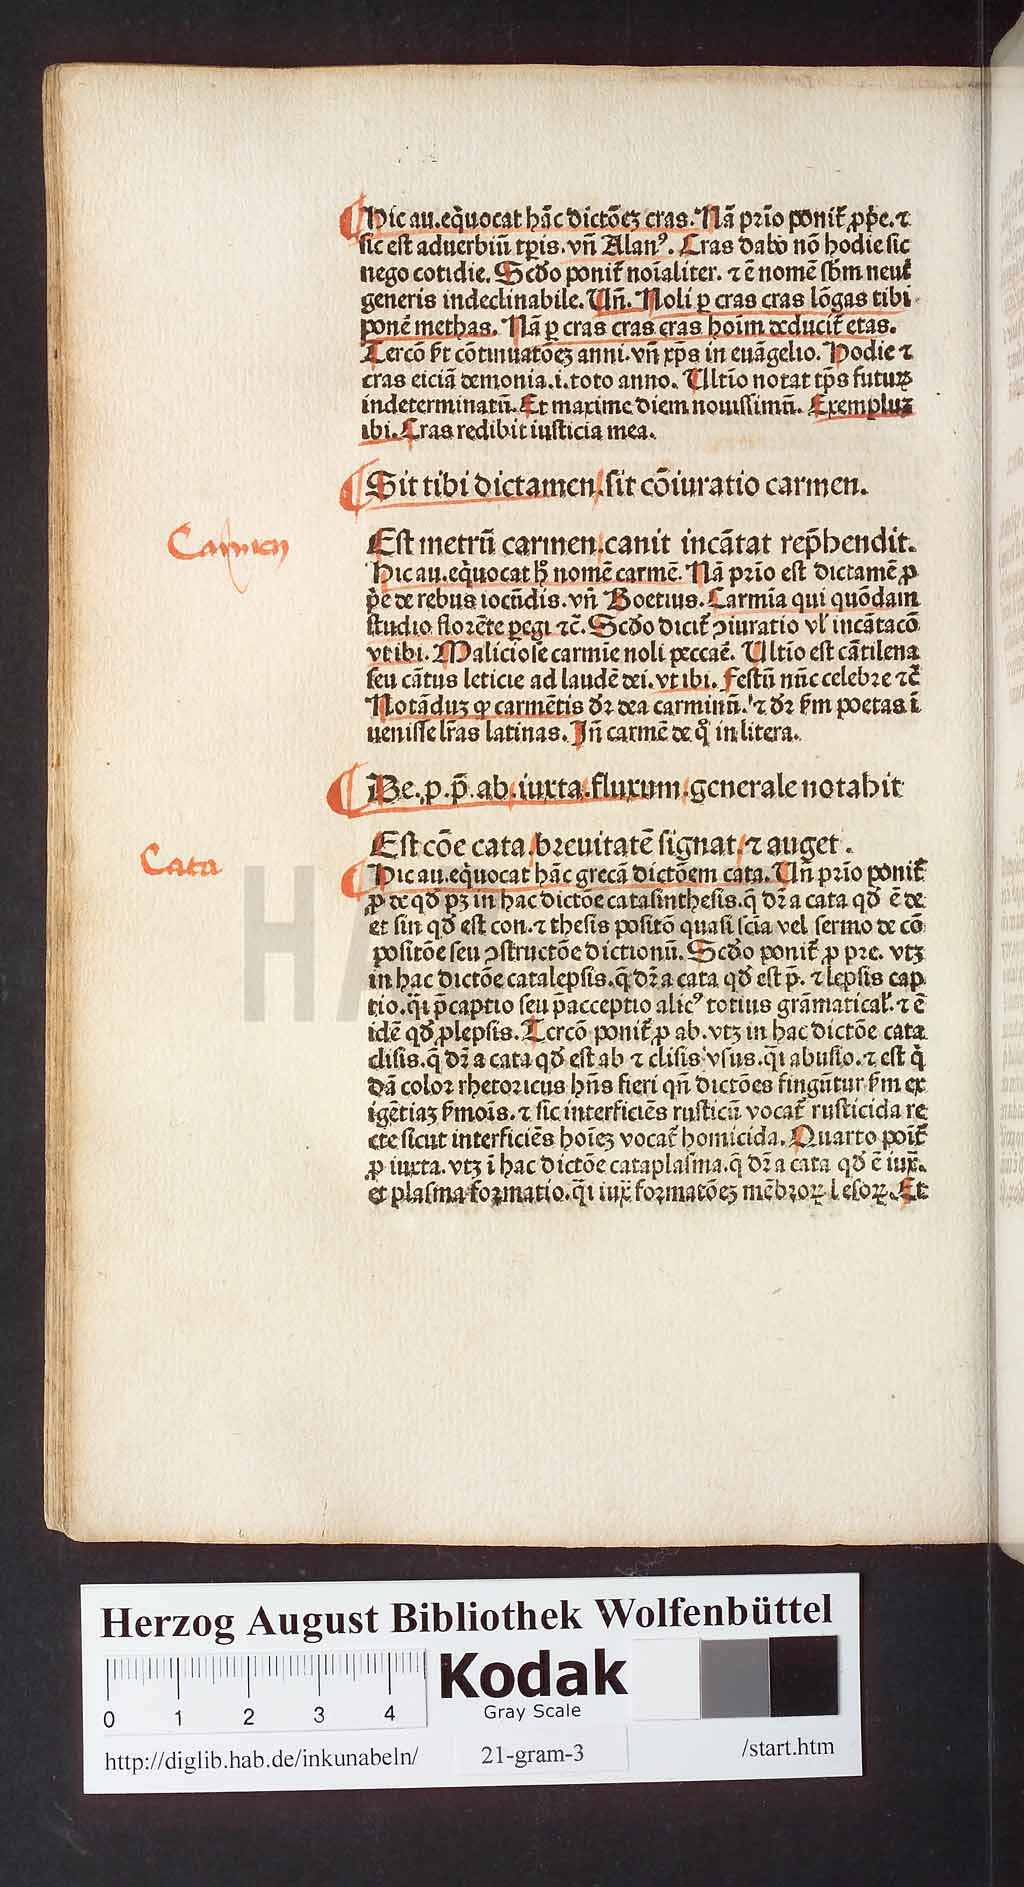 Hic au. eq̇uocat hāc dictōeꝫ cras. Nā prīo ponit᷑ ꝓpe. ⁊
sic est aduerbiū tp̄is. vn̄ Alanꝰ. Cras dabo nō hodie sic
nego cotidie. Scd̓o ponit᷑ noīaliter. ⁊ ē nomē sb̄m neut᷑
generis indeclinabile. Un̄. Noli ꝑ cras cras lōgas tibi
ponē methas. Nā ꝑ cras cras cras hoīm deducit᷑ etas.
Tercō fit cōtinuatōeꝫ anni. vn̄ xp̄s in euāgelio. Hodie ⁊
cras eiciā demonia. i. toto anno. Ultīo notat tp̄s futuꝝ
indeterminatū. Et maxime diem nouissimū. Exempluꝫ
ibi. Cras redibit iusticia mea.
Sit tibi dictamen. sit cōiuratio carmen.
Carmen
Est metrū carmen. canit incātat rep̄hendit.
Hic au. eq̇uocat hͦ nomē carmē. Nā prīo est dictamē ꝓ
p̄e de rebus iocūdis. vn̄ Boetius. Carmīa qui quōdam
studio florēte peregi ⁊c̄. Scd̓o dicit᷑ ꝯiuratio vl̓ incātacō
vt ibi. Maliciose carmīe noli peccaē. Ultīo est cātilena
seu cātus leticie ad laudē dei. vt ibi. Festū nūc celebre ⁊c̄
Notāduꝫ ꝙ carmētis dr̄ dea carminū. ⁊ dr̄ s̄m poetas ī
uenisse lr̄as latinas. In̄ carmē de qͦ in litera.
Be. ꝓ. p̄. ab. iuxta. fluxum. generale notabit
Cata
Est cōe cata breuitatē signat ⁊ auget.
Hic au. eq̇uocat hāc grecā dictōem cata. Un̄ prīo ponit᷑
ꝓ de qd̓ pꝫ in hac dictōe catasinthesis. q̄ dr̄ a cata qd̓ ē de
et sin qd̓ est con. ⁊ thesis positō quasi scīa vel sermo de cō
positōe seu ꝯstructōe dictionū. Scd̓o ponit᷑ ꝓ pre. vtꝫ
in hac dictōe catalepsis. q̄ dr̄ a cata qd̓ est p̄. ⁊ lepsis cap
tio. q̄i p̄captio seu p̄acceptio alicꝰ totius grāmatical̓. ⁊ ē
idē qd̓ ꝓlepsis. Tercō ponit᷑ ꝓ ab. vtꝫ in hac dictōe cata
clisis. q̄ dr̄ a cata qd̓ est ab ⁊ clisis vsus. q̄i abusio. ⁊ est q̇
dā color rhetoricus hn̄s fieri qn̄ dictōes fingūtur s̄m ex
igētiaꝫ s̄mois. ⁊ sic interficiēs rusticū vocat᷑ rusticida re
cte sicut interficiēs hoīeꝫ vocat᷑ homicida. Quarto poīt᷑
ꝓ iuxta. vtꝫ ī hac dictōe cataplasma. q̄ dr̄ a cata qd̓ ē iux̄.
et plasma formatio. q̄i iux̄ formatōeꝫ mēbroꝝ lesoꝝ. Et
Herzog August Bibliothek Wolfenbüttel
0 1 2 3 4
Kodak
Gray Scale
http://diglib.hab.de/inkunabeln/ 21-gram-3 /start.htm
HAB